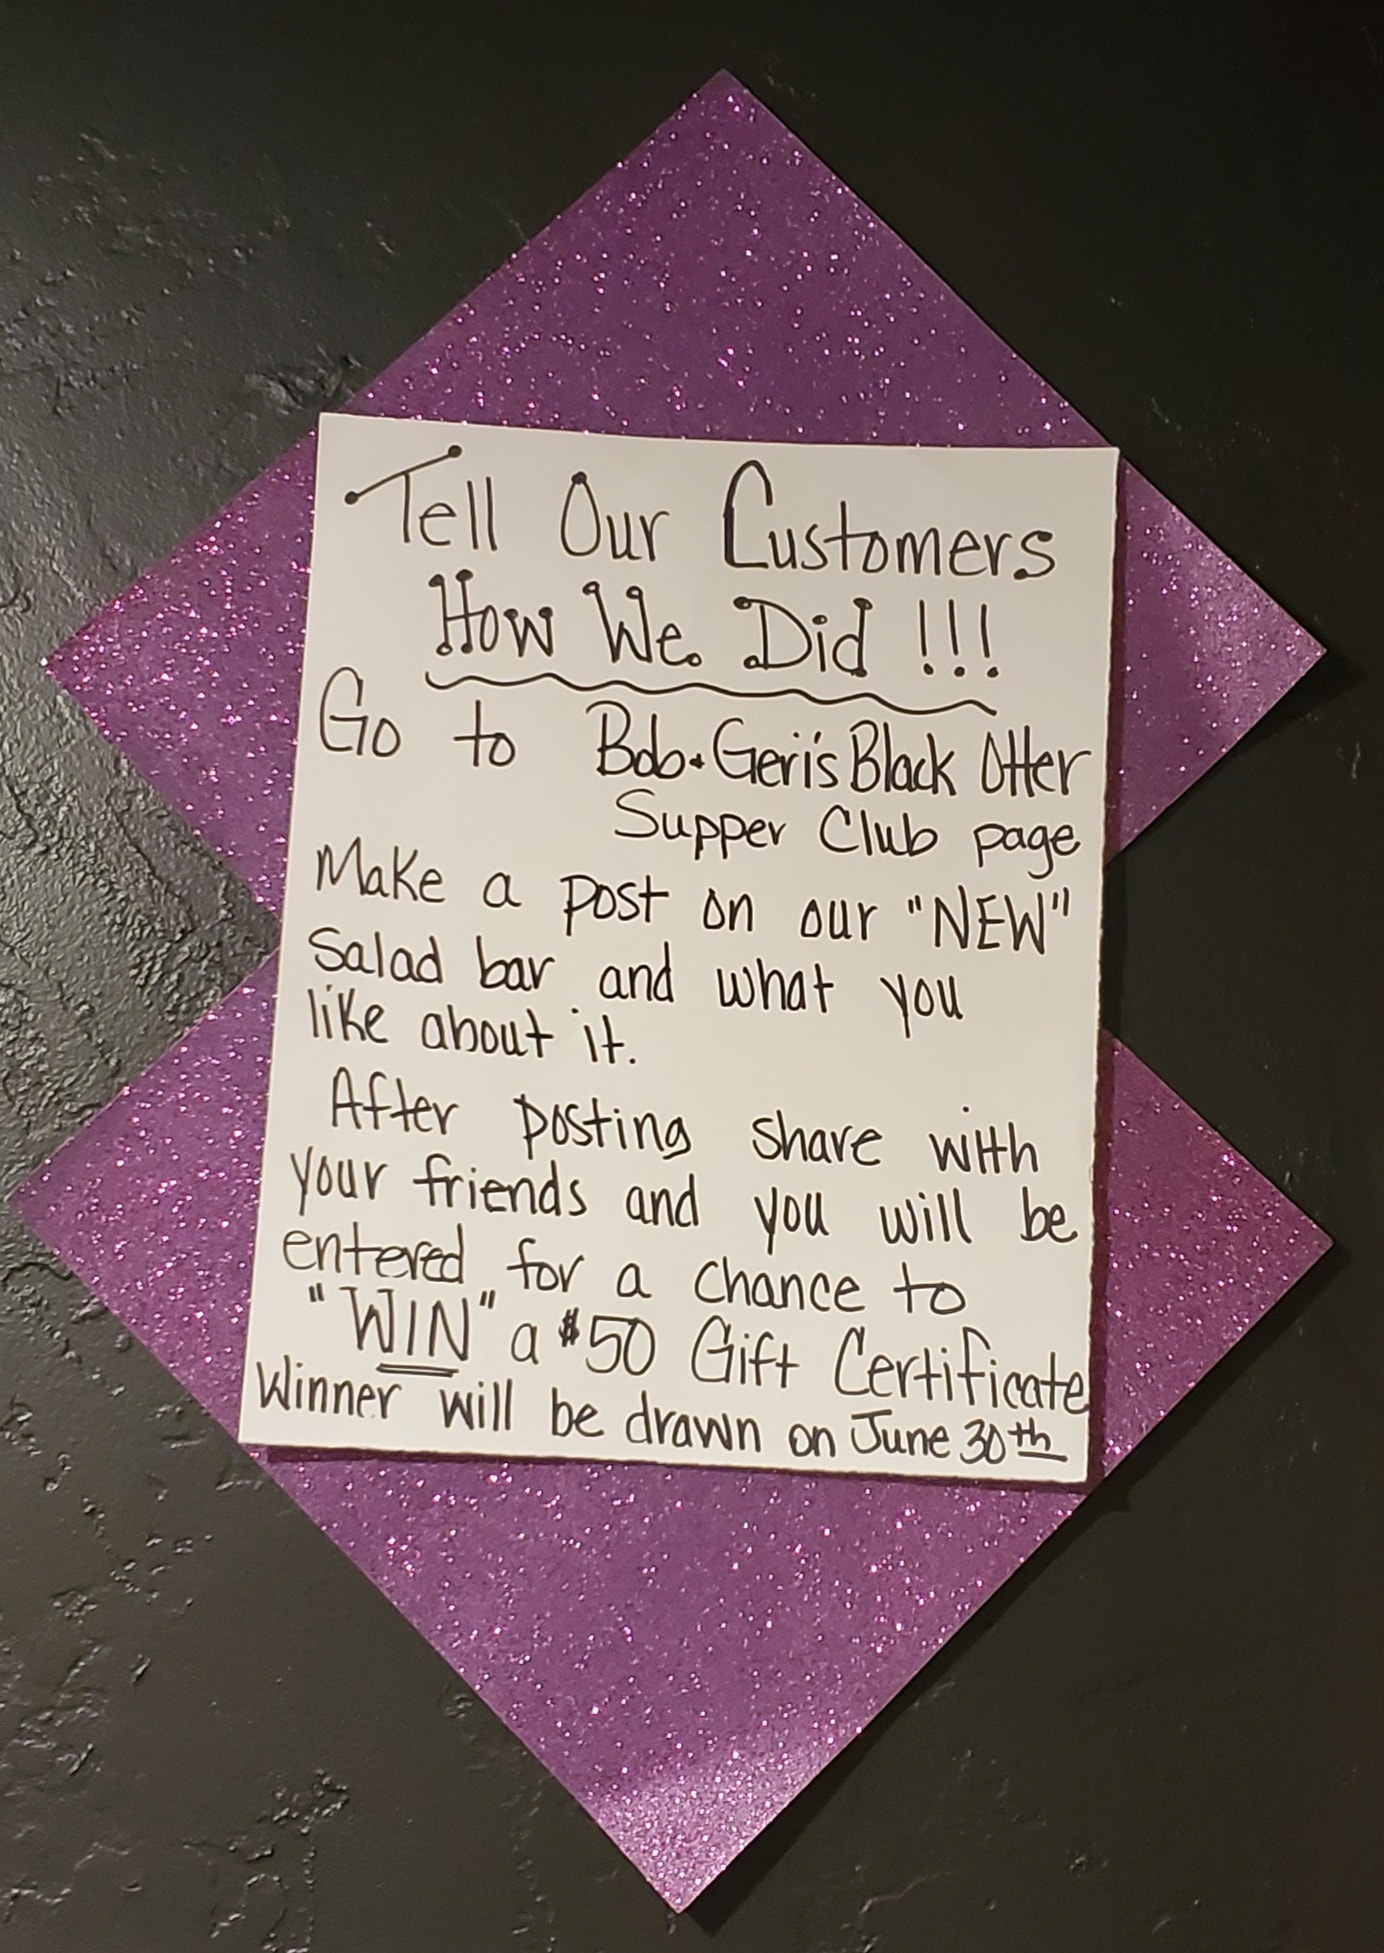 Tell Our Customers
How We Did !!!
Go to Bob & Geri's Black Otter
Supper Club page
Make a post on our "NEW"
Salad bar and what you
like about it.
After posting share with
your friends and you will be
entered for a chance to
"WIN" a $50 Gift Certificate
Winner will be drawn on June 30th